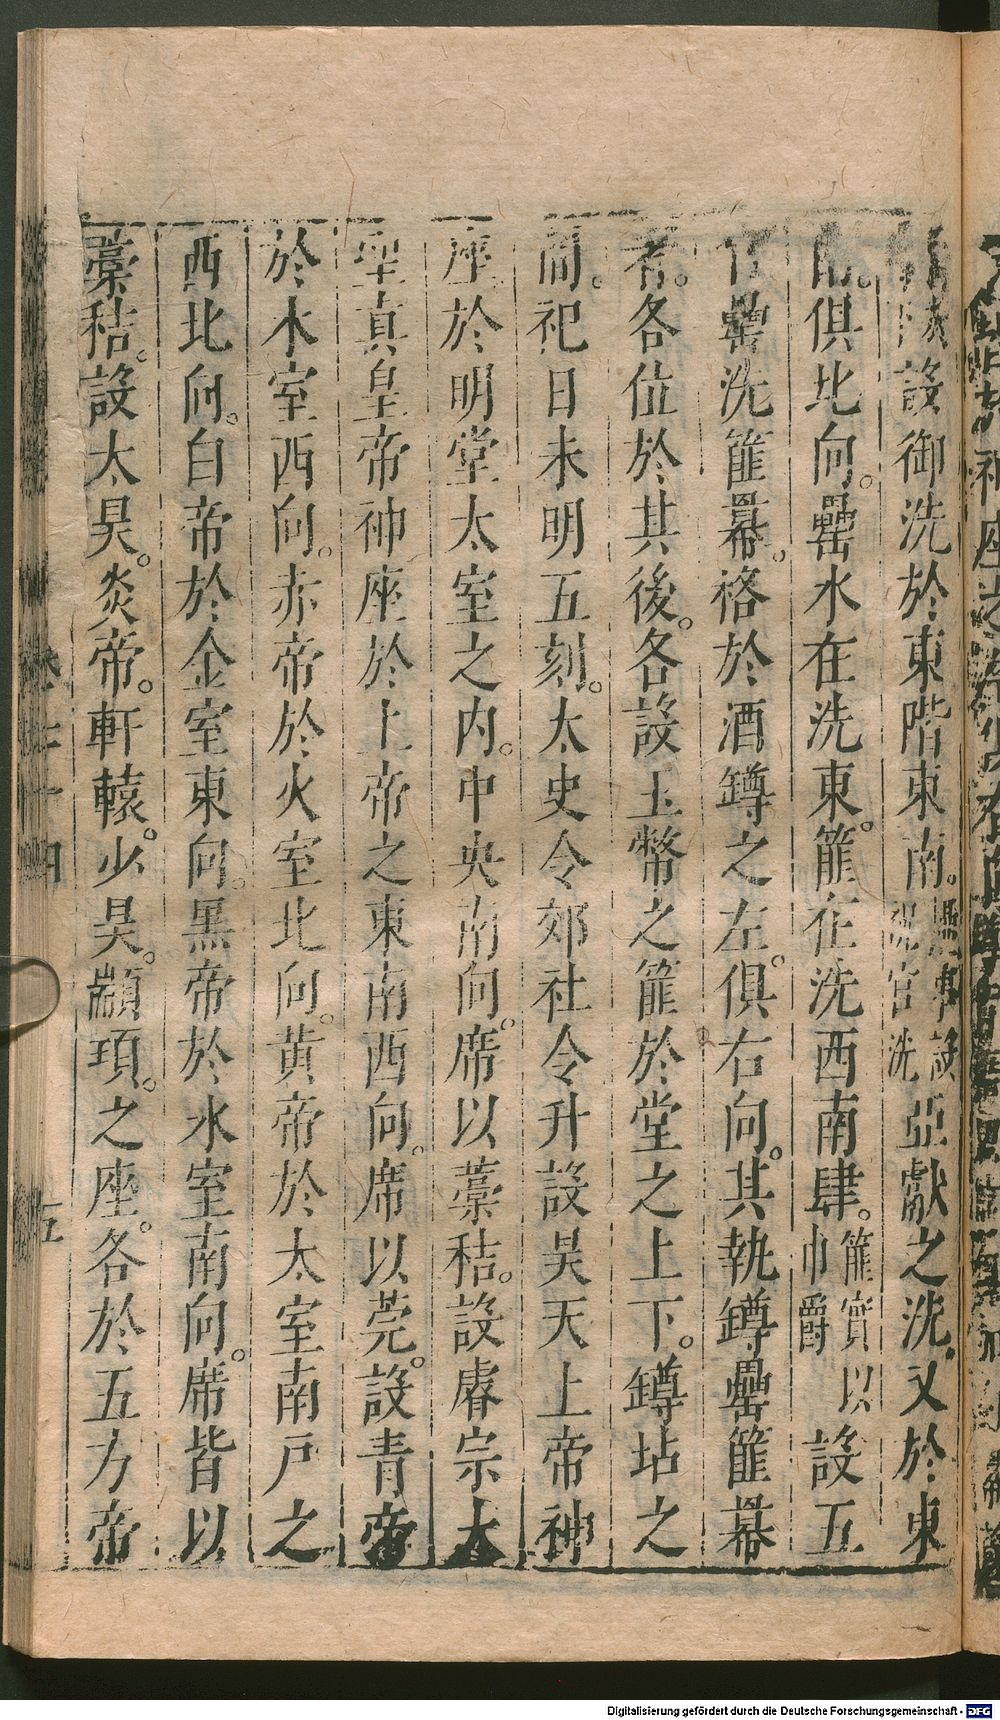 設御洗於東階東南。攝事設祝官洗亞獻之洗。又於東
俱北向。罍水在洗東。篚在洗西南肆。篚實以巾爵設五
官罍洗篚羃。各於酒罇之左。俱右向。其執罇罍篚羃
者。各位於其後。各設玉幣之篚於堂之上下。罇坫之
間。祀日未明五刻。太史令郊社令升設昊天上帝神
座於明堂太室之內。中央南向。席以藁秸。設睿宗大
聖真皇帝神座於上帝之東南西向。席以莞。設青帝
於木室西向。赤帝於火室北向。黃帝於太室南戶之
西北向。白帝於金室東向。黑帝於水室南向。席皆以
藁秸。設太昊。炎帝。軒轅。少昊。顓頊。之座。各於五方帝
五
Digitalisierung gefördert durch die Deutsche Forschungsgemeinschaft - DFG